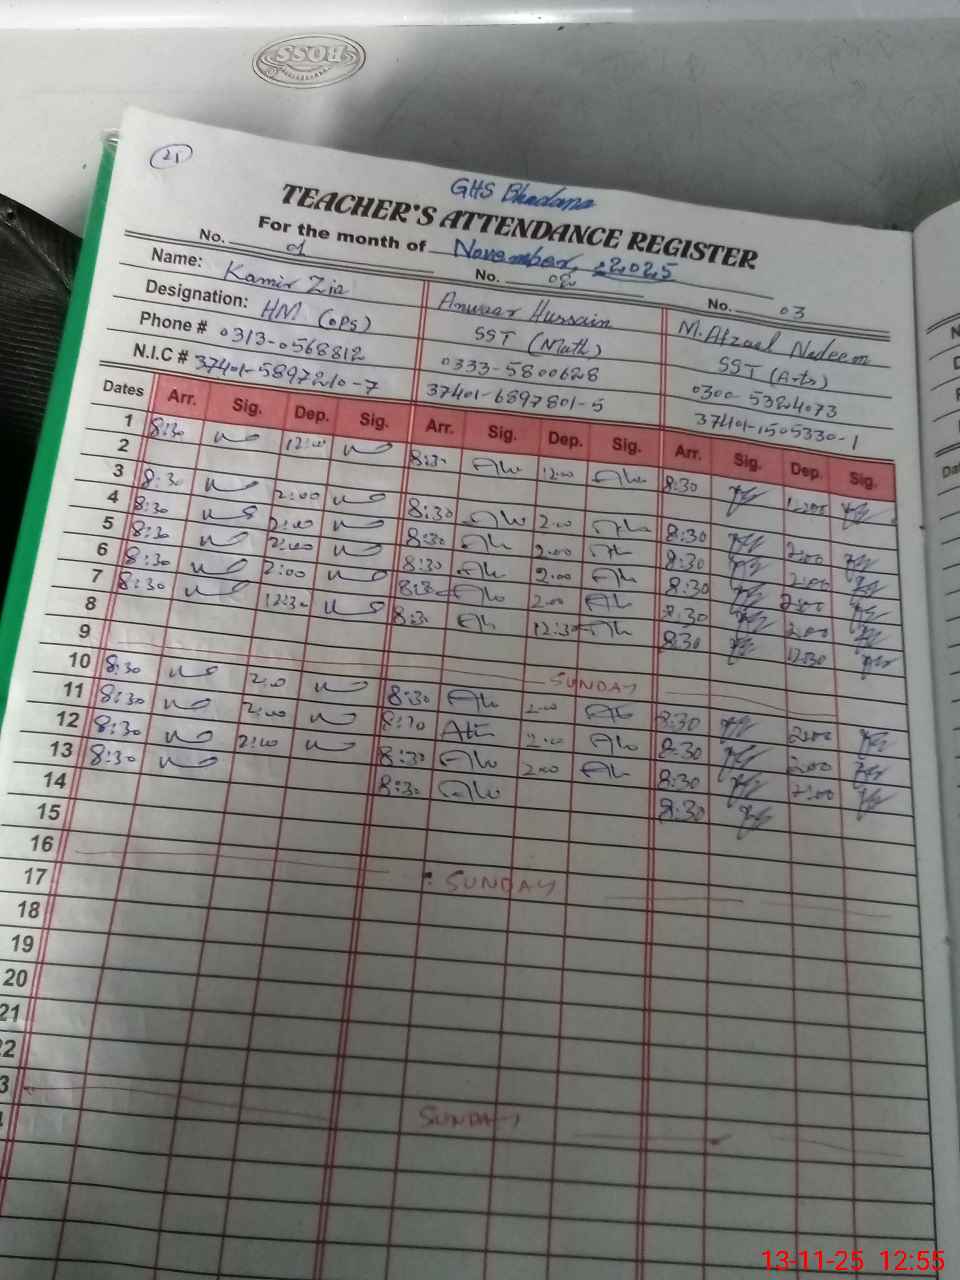 BOSS
21
GHS Bhadana
TEACHER'S ATTENDANCE REGISTER
For the month of November, 2025
No. 01 No. 02 No. 03
Name: Kamir Zia Anwaar Hussain M. Afzaal Nadeem
Designation: HM (OPS) SST (Math) SST (Arts)
Phone # 0313-0568812 0333-5800628 0300-5324073
N.I.C # 37401-5897210-7 37401-6897801-5 37401-1505330-1
Dates Arr. Sig. Dep. Sig. Arr. Sig. Dep. Sig. Arr. Sig. Dep. Sig.
1 8:30 12:00 8:30 12:00 8:30 12:00
2
3 8:30 2:00 8:30 2:00 8:30 2:00
4 8:30 2:00 8:30 2:00 8:30 2:00
5 8:30 2:00 8:30 2:00 8:30 2:00
6 8:30 2:00 8:30 2:00 8:30 2:00
7 8:30 12:30 8:30 12:30 8:30 12:30
8
9 SUNDAY
10 8:30 2:00 8:30 2:00 8:30 2:00
11 8:30 2:00 8:30 2:00 8:30 2:00
12 8:30 2:00 8:30 2:00 8:30 2:00
13 8:30 8:30 8:30
14
15
16 SUNDAY
17
18
19
20
21
22
3 SUNDAY
13-11-25 12:55